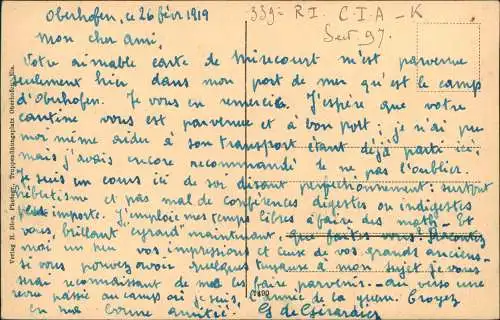 Oberhofen, le 26 févr 1919
339e R.I. C.I.A - K
Sect 97.
Mon cher ami,
Votre aimable carte de Mirecourt m'est parvenue
seulement hier dans mon port de mer qu'est le camp
d'Oberhofen. Je vous en remercie. J'espère que votre
cantine vous est parvenue et à bon port; je n'ai pu
moi même aider à son transport étant déjà parti ici
mais j'avais encore recommandé de ne pas l'oublier.
Je suis en cours ici de soi disant perfectionnement: surtout
et pas mal de conférences digestes ou indigestes
peu importe. J'emploie mes temps libres à faire des maths. Et
vous, brillant "cyrard" maintenant, que faites vous? Racontez
moi un peu vos impressions et ceux de vos grands anciens
si vous pouvez avoir quelques à mon sujet je vous
serai reconnaissant de me les faire parvenir. au verso une
revue passée au camp où je suis, l'année de la guerre. Croyez
en ma bonne amitié. G de
Verlag A. Dick, Photogr., Truppenübungsplatz Oberhofen, Els.